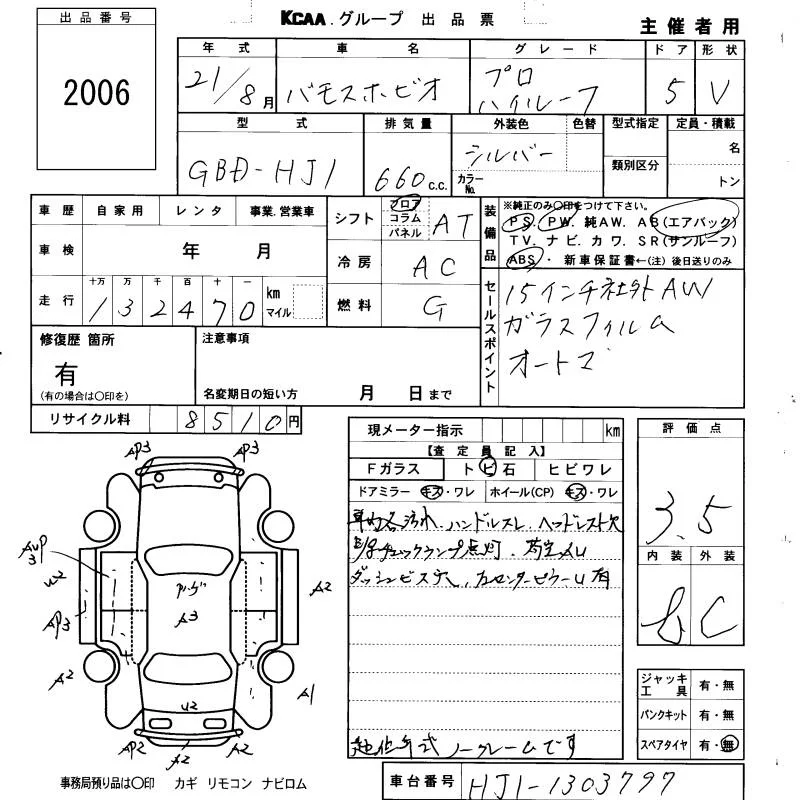 出品番号
2006
KCAA.グループ 出品票
主催者用
年式 車名 グレード ドア 形状
21/8月 バモスホビオ プロ ハイルーフ 5 V
型式 排気量 外装色 色替 型式指定 定員・積載
GBD-HJ1 660c.c. シルバー
カラーNo. 類別区分 名
トン
車歴 自家用 レンタ 事業.営業車
車検 年 月
走行 十万 万 千 百 十 一
132470 km マイル
シフト フロア コラム パネル AT
冷房 AC
燃料 G
装備品
※純正のみ〇印をつけて下さい。
PS. PW. 純AW. AB(エアバック)
TV. ナビ. カワ. SR(サンルーフ)
ABS・ 新車保証書←(注)後日送りのみ
セールスポイント
15インチ社外AW
ガラスフィルム
オートマ
修復歴 箇所
有
(有の場合は〇印を)
注意事項
名変期日の短い方 月 日まで
リサイクル料 8510円
現メーター指示 km
【査定員記入】
Fガラス トビ石 ヒビワレ
ドアミラー キズ・ワレ ホイール(CP) キズ・ワレ
ハンドルスレ. ヘッドレスト欠
チェックランプ点灯.
ダッシュビス穴.
ノークレームです
評価点
3.5
内装 外装
C
ジャッキ工具 有・無
パンクキット 有・無
スペアタイヤ 有・無
AP3 AP3
U2
AP3
A2
A3
A2
A1
U2
AP2 A2 A2
事務局預り品は〇印 カギ リモコン ナビロム
車台番号 HJ1-1303797